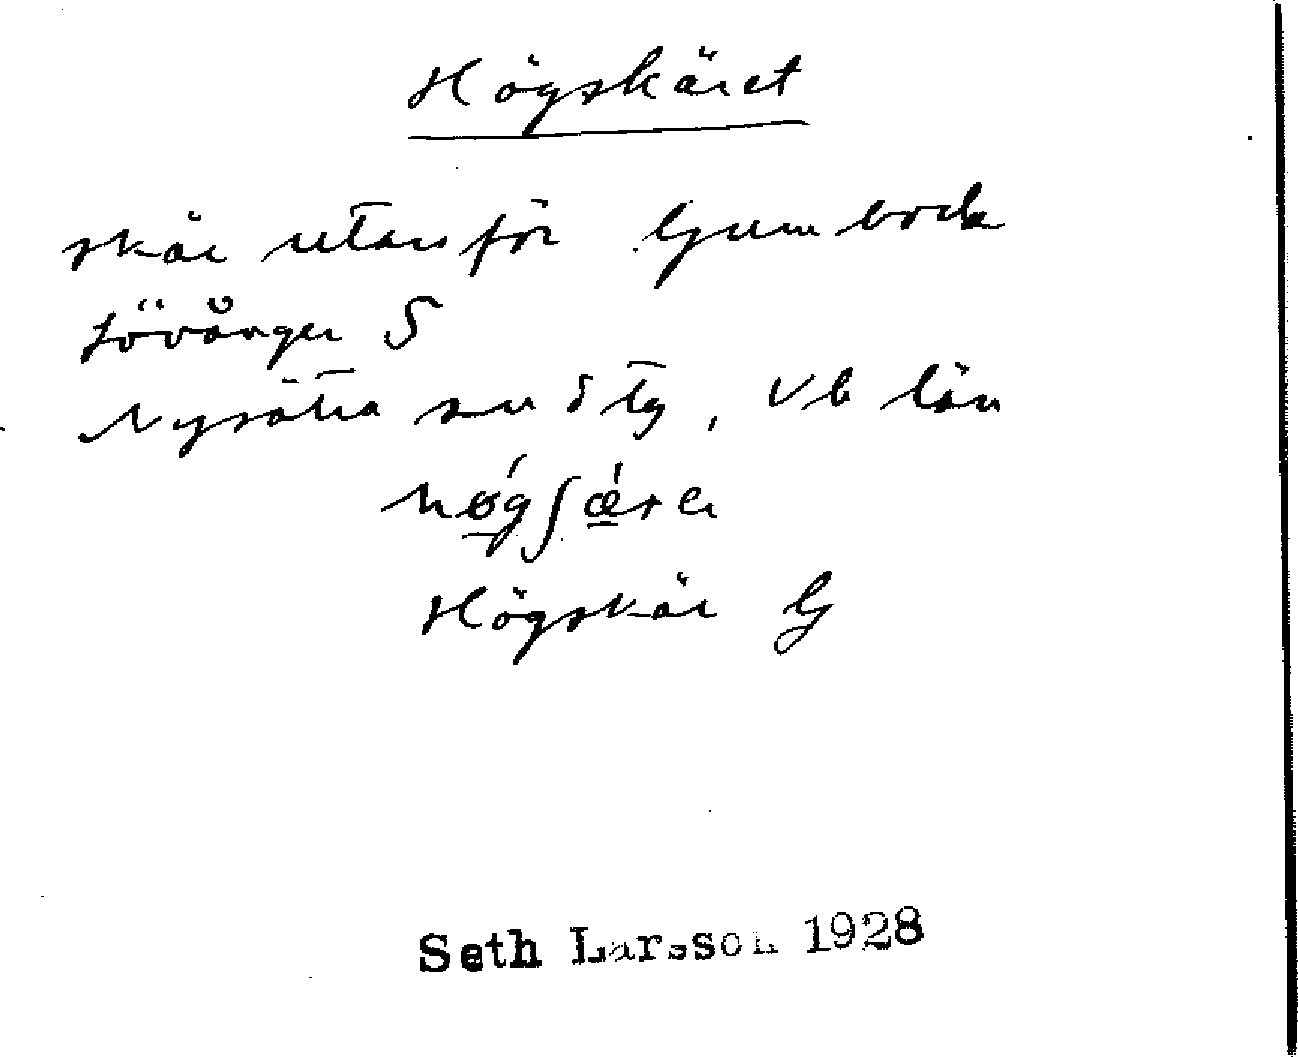 Högskäret
skär utanför Gumboda
Lövånger S
Nysätra sn o tg, Vb län
høgʃærə
Högskär G
Seth Larsson 1928